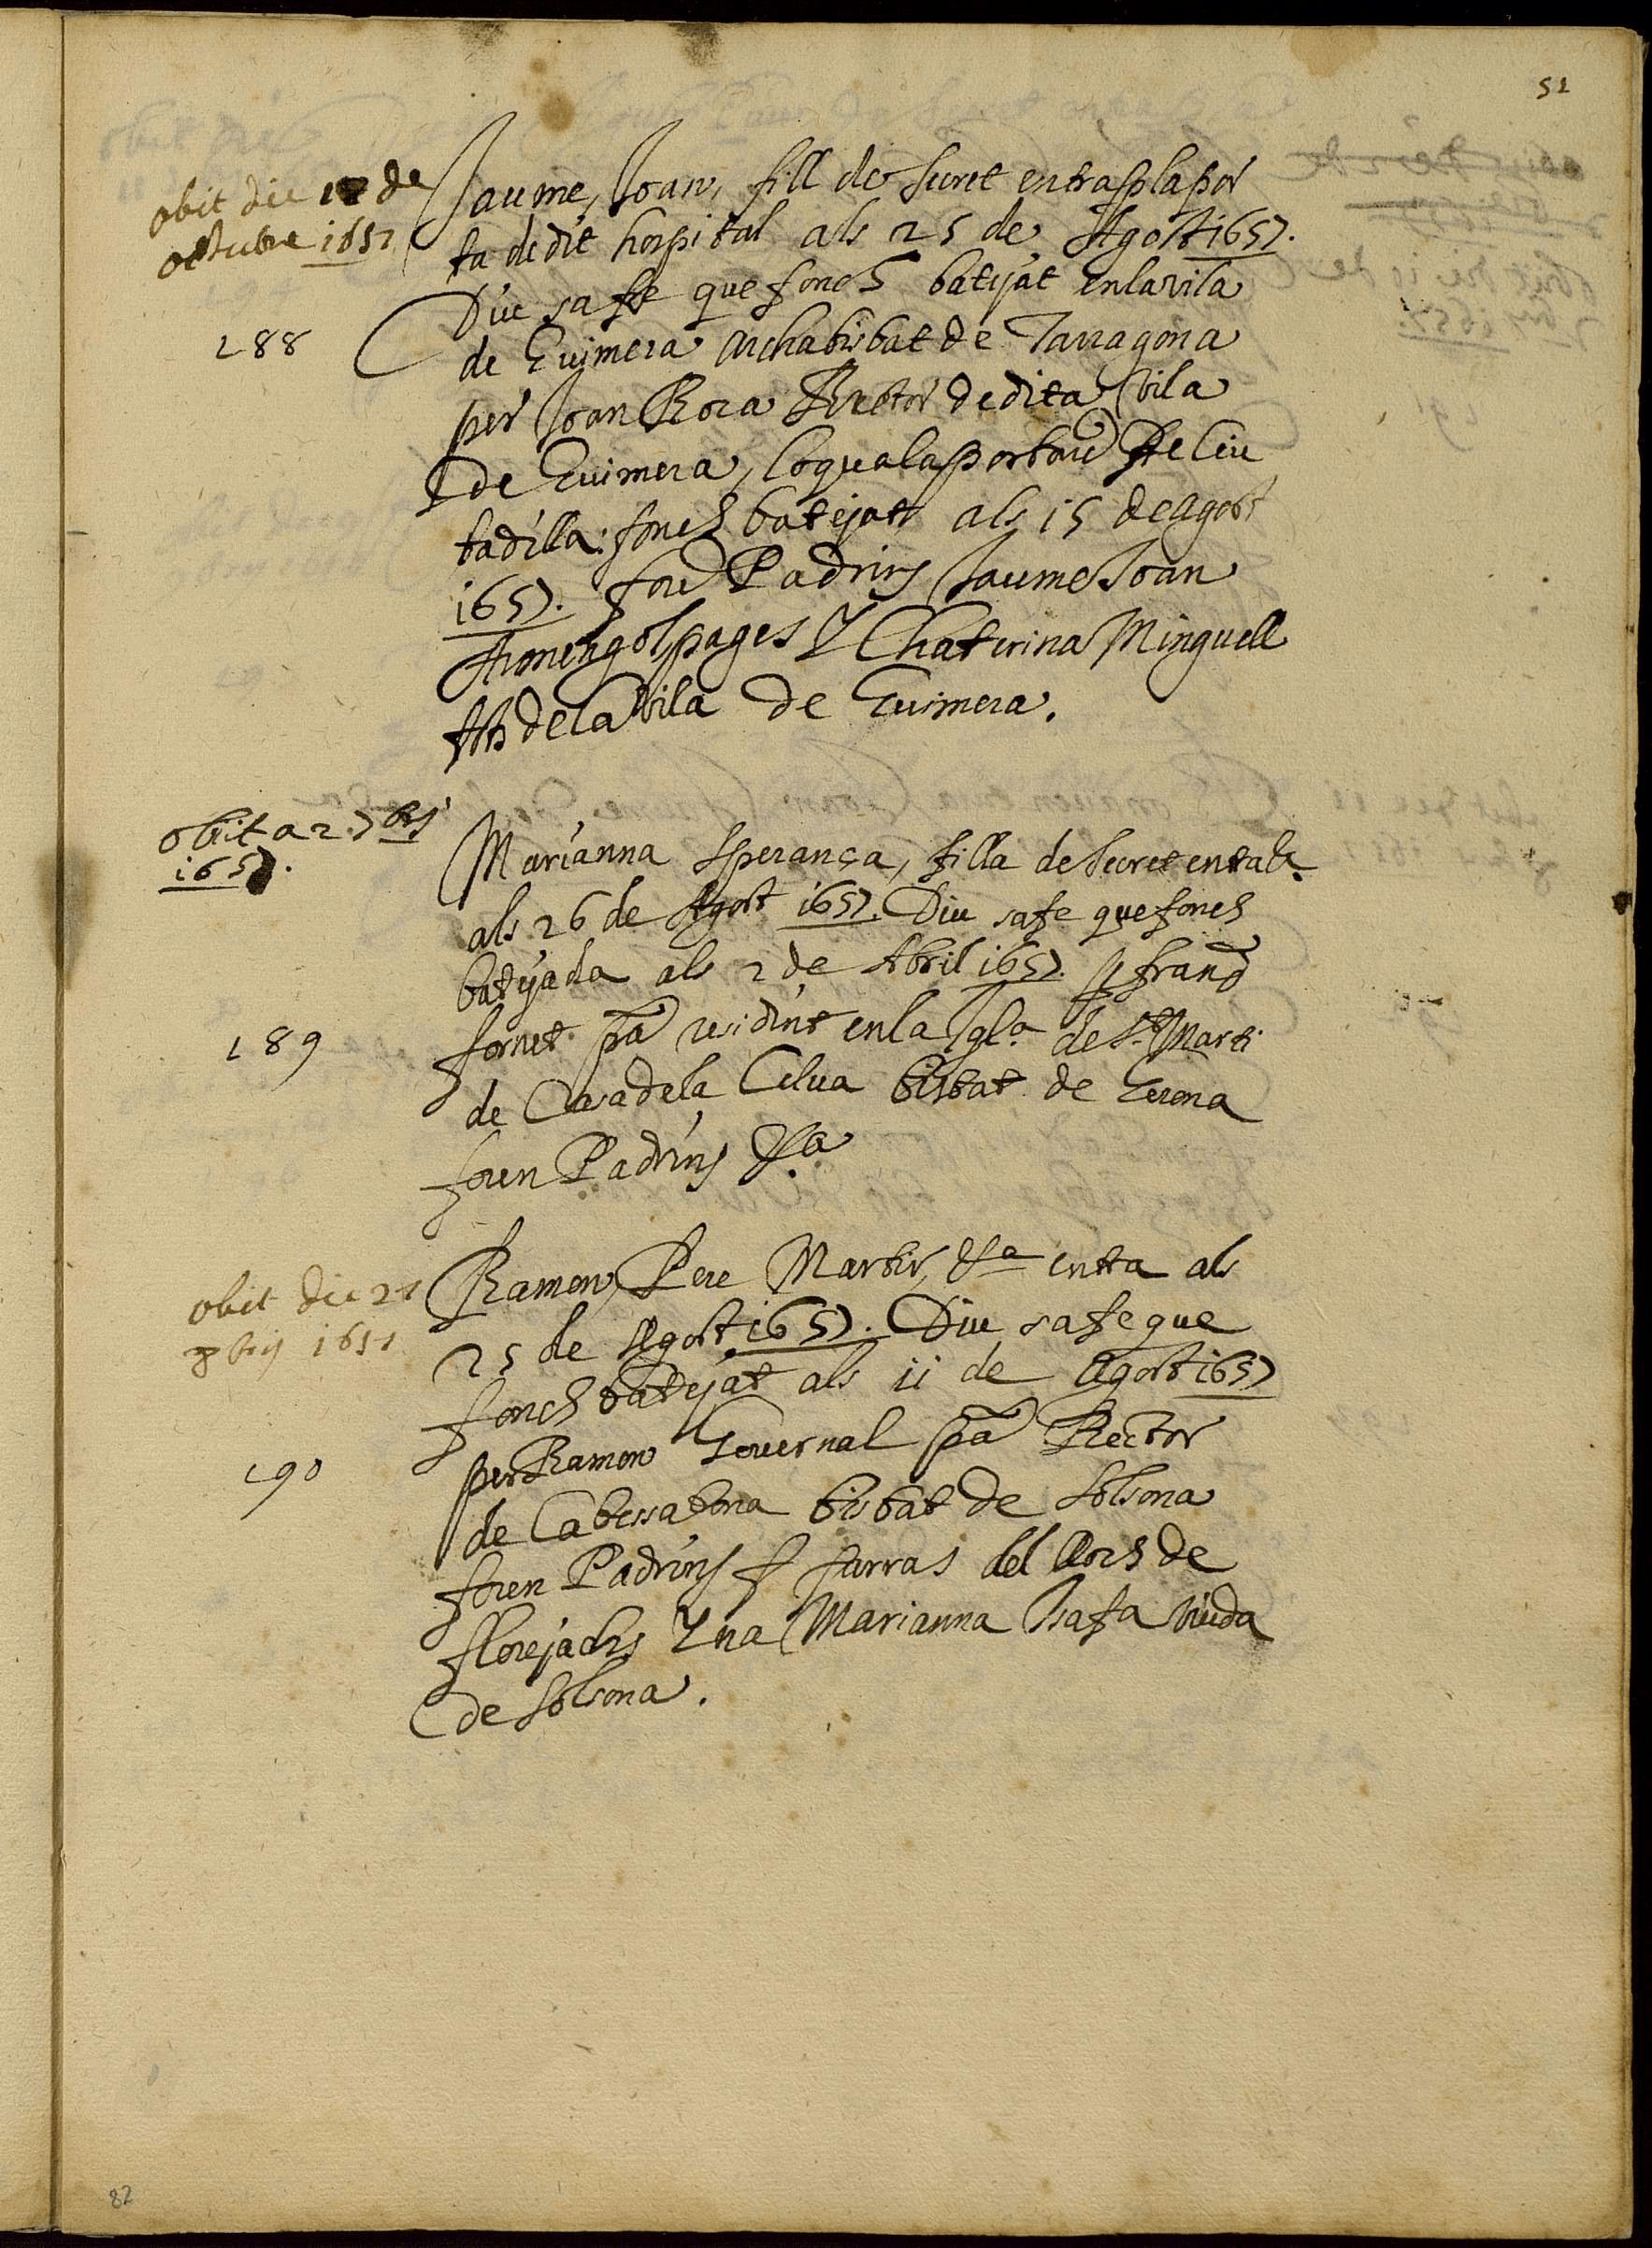 51
obit die 17 de
octubre 1657
288
Jaume, Joan, fill de secret entra p la por
ta de dit hospital als 25 de Agost 1657.
Diu sa fe que fonch batejat en la vila
de Guimera Archabisbat de Tarragona
per Joan Rora Rector de dita vila
de Guimera, lo qual aportaré de Ciu
tadilla: fonch batejat als 15 de Agost
1657. foré Padrins Jaume Joan
Armengol pages y Chaterina Minguell
tts de la vila de Guimera.
obiit a 2 7bis
1657.
189
Marianna Sperança, filla de secret entra &a
als 26 de Agost 1657. Diu sa fe que fonch
batejada als 2 de Abril 1657. p franc
fornet pre residint en la Igla de St Marti
de Casa de la Celva bisbat de Gerona
foren Padrins &a
obit die 21
8bris 1657
190
Ramon, Pere Martir, &a entra als
25 de Agost 1657. Diu sa fe que
fonch batejat als 11 de Agost 1657
per Ramon Governal pre Rector
de Cabessabona bisbat de Solsona
foren Padrins f farras del lloch de
florejachs Y na Marianna Isafa viuda
de Solsona.
82